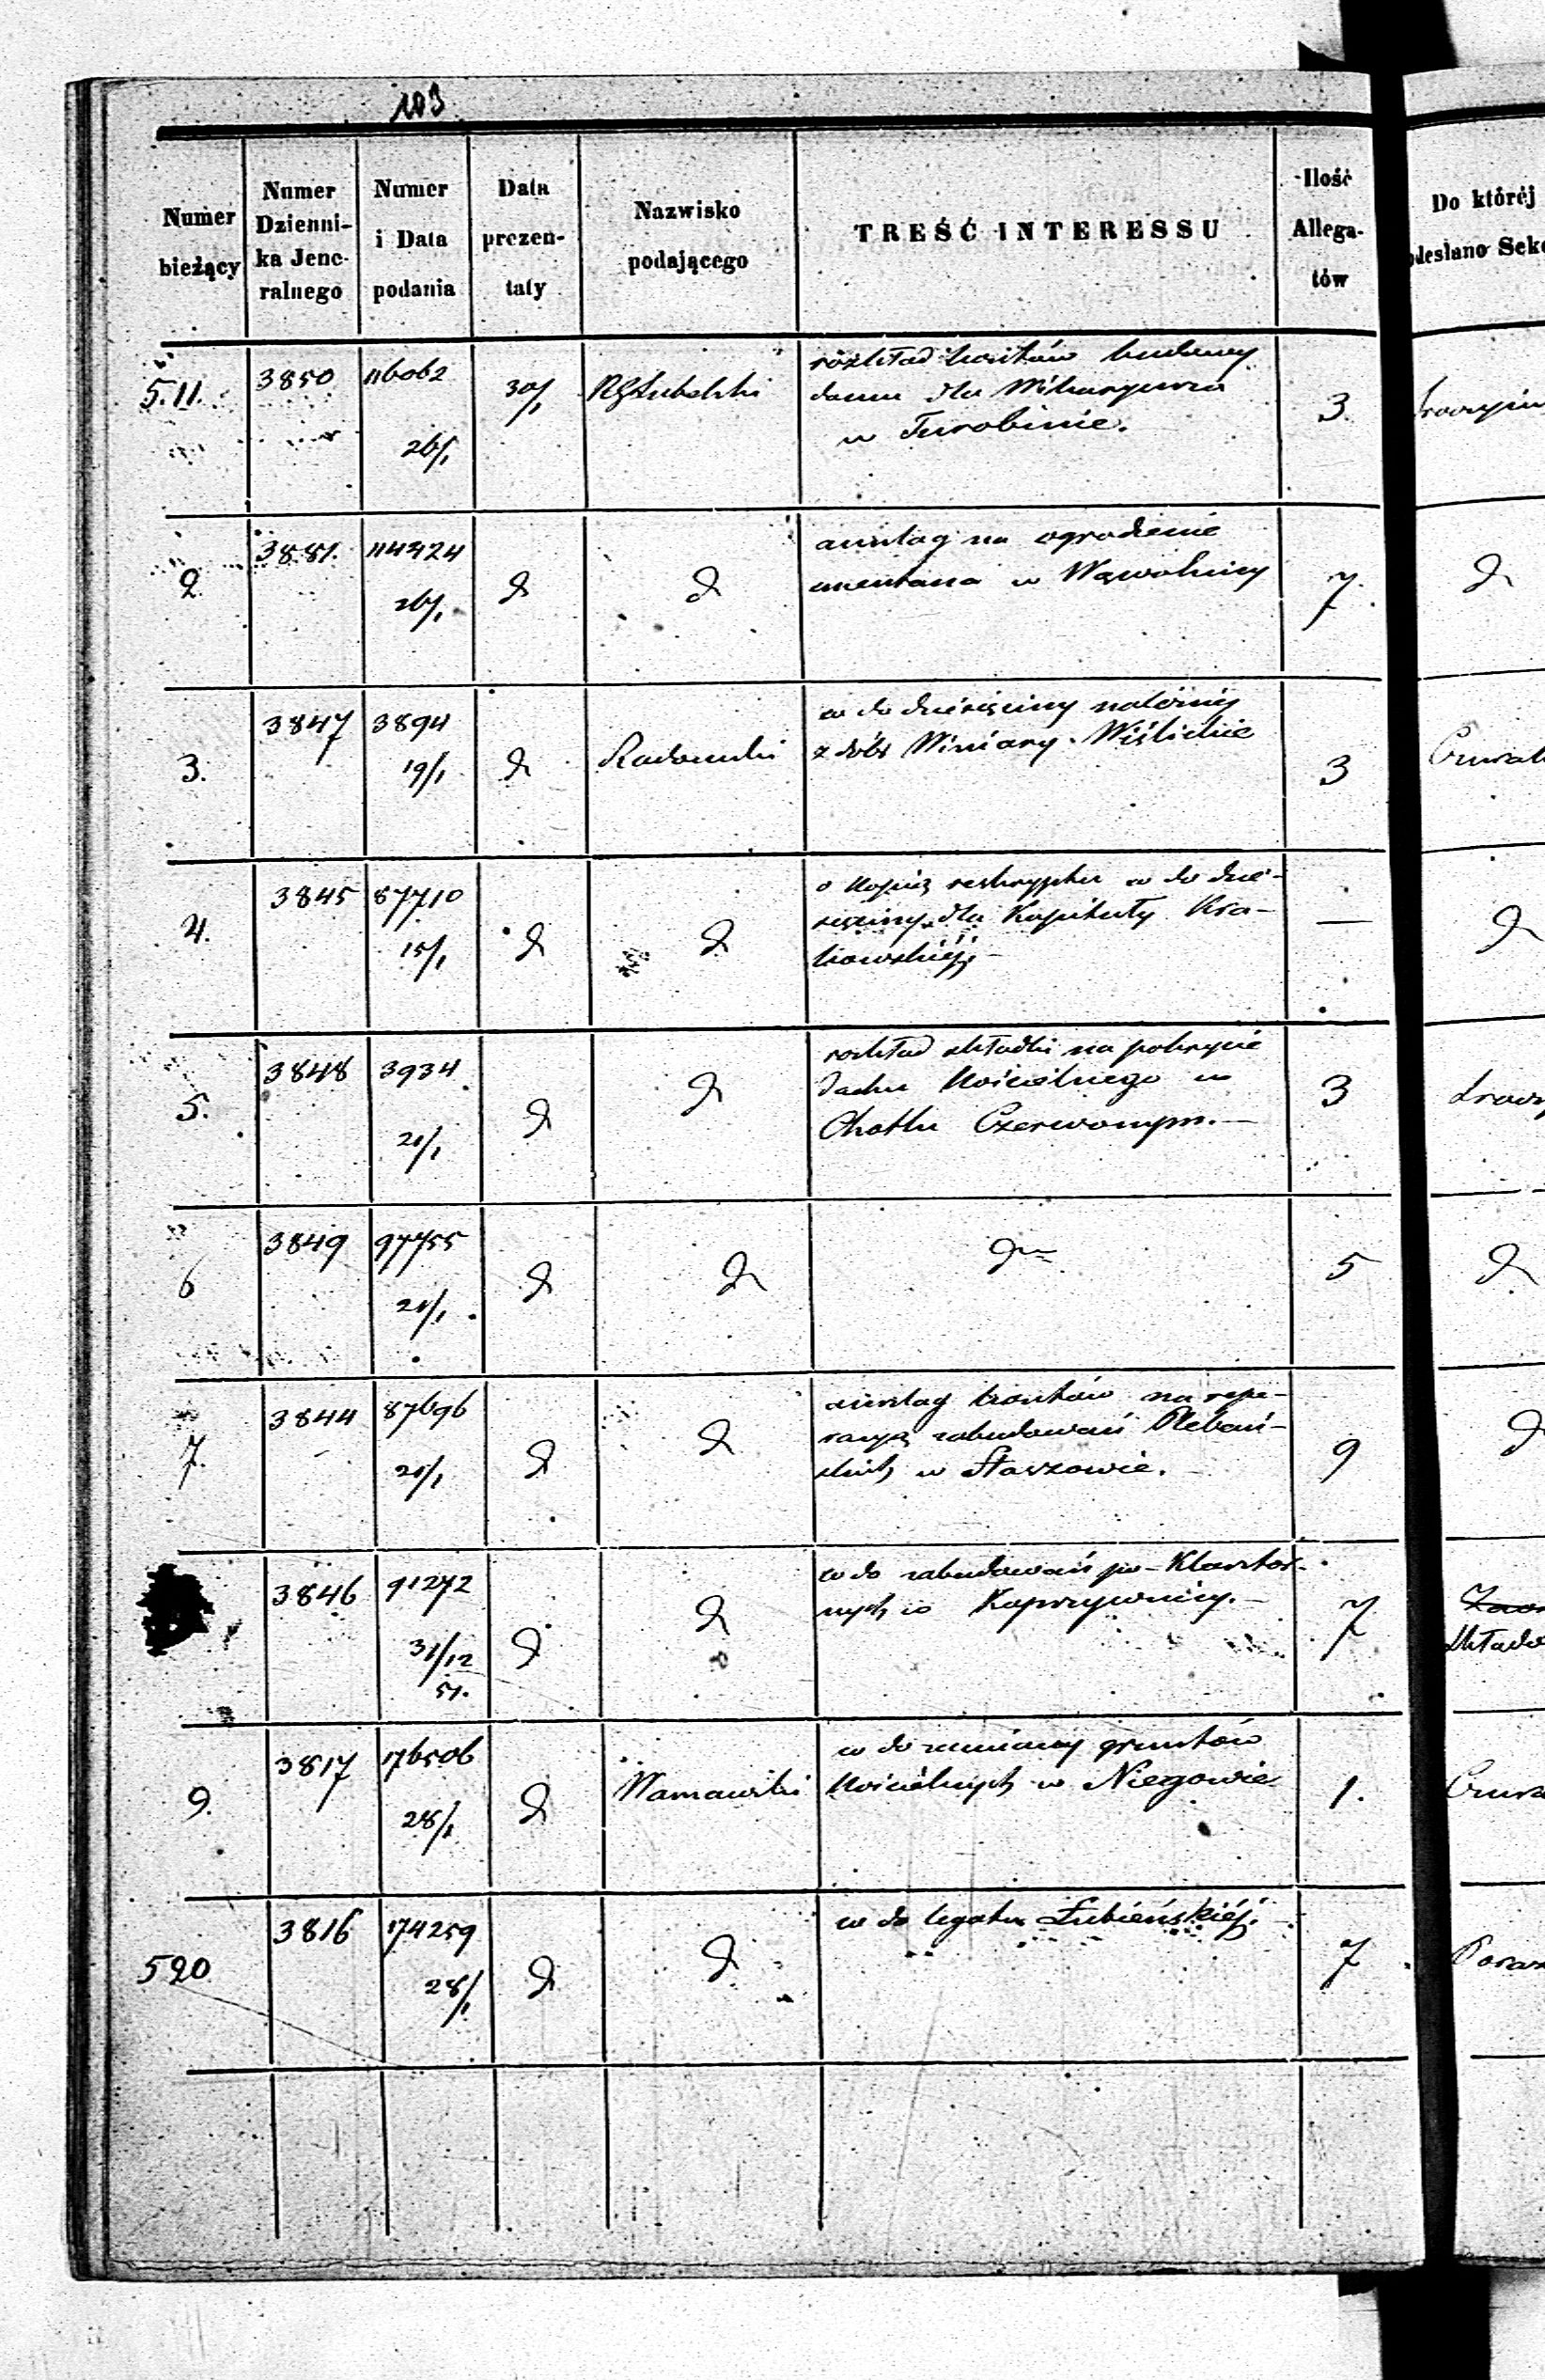 103
Numer bieżący | Numer Dzienni-ka Jene-ralnego | Numer i Data podania | Data prezen-taty | Nazwisko podającego | TREŚĆ INTERESSU | Ilość Allega-tów | Do któréj
5.11. 3850 116062 26/1 30/1 RGLubelski
rozkład kosztów budowy
domu dla Wikaryusza
w Turobinie.
3.
2. 3881. 114424 26/1 d d
anszlag na ogrodzenie
cmentarza w Wąwolnicy
7. d
3. 3847 3894 19/1 d Radomski
w do dziesięciny należnéj
z dóbr Winiary Wiślickie
3
4. 3845 87710 15/1 d d
o kopię reskryptu w do dzie-
sięciny dla Kapituły Kra-
kowskiéj. –
— d
5. 3848 3934 21/1 d d
rozkład składki na pokrycie
dachu Kościelnego w
Chotlu Czerwonym. –
3
6 3849 97755 21/1 d d
dto
5 d
7. 3844 87696 21/1 d d
anszlag kosztów na repe-
racyą zabudowań Plebań-
skich w Staszowie. –
9 d
3846 91272 31/12 51. d d
w do zabudowań po-Klasztor-
nych w Koprzywnicy. –
7
9. 3817 176506 28/1 d Warszawski
w do zamiany gruntów
Kościelnych w Niegowie
1.
520 3816 174259 28/1 d d
w do legatu Łubieńskiéj. –
7